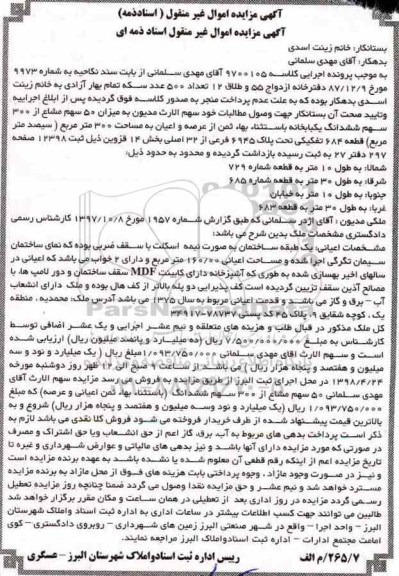 آگهی مزایده اموال غیر منقول ( اسنادذمه)
آگهی مزایده اموال غیر منقول اسناد ذمه ای
بستانکار: خانم زینت اسدی
بدهکار: آقای مهدی سلمانی
به موجب پرونده اجرایی کلاسه ۹۷۰۰۱۰۵ آقای مهدی سلمانی از بابت سند نکاحیه به شماره ۹۹۷۳
مورخ ۸۷/۱۲/۹ دفترخانه ازدواج ۵۵ و طلاق ۱۲ تعداد ۵۰۰ عدد سکه تمام بهار آزادی به خانم زینت
اسدی بدهکار بوده که به علت عدم پرداخت منجر به صدور کلاسه فوق گردیده پس از ابلاغ اجراییه
وتایید صحت آن بستانکار جهت وصول مطالبات خود سهم الارث مدیون به میزان ۵۰ سهم مشاع از ۳۰۰
سهم ششدانگ یکبابخانه باستثناء بهاء ثمن از عرصه و اعیان به مساحت ۳۰۰ متر مربع ( سیصد متر
مربع) قطعه ۶۸۴ تفکیکی تحت پلاک ۶۹۴۵ فرعی از ۳۲ اصلی بخش ۱۴ قزوین ذیل ثبت ۱۲۳۹۸ صفحه
۲۹۷ دفتر ۲۷ به ثبت رسیده بازداشت گردیده و محدود به حدود ذیل:
شمالا: به طول ۱۰ متر به قطعه شماره ۷۲۹
شرقا: به طول ۳۰ متر به قطعه شماره ۶۸۵
جنوبا: به طول ۱۰ متر به خیابان
غربا: به طول ۳۰ متر به قطعه ۶۸۳
ملکی مدیون : آقای اژدر سلمانی که طبق گزارش شماره ۱۹۵۷ مورخ ۱۳۹۷/۱۰/۸ کارشناس رسمی
دادگستری مشخصات ملک بدین شرح می باشد:
مشخصات اعیانی: یک طبقه ساختمان به صورت نیمه اسکلت با سقف ضربی بوده که نمای ساختمان
سیمان تگرگی اجرا شده و مساحت اعیانی ۱۶۰/۰۰ متر مربع و دارای ۲ خواب می باشد که اعیانی در
سالهای اخیر بهسازی شده به طوری که آشپزخانه دارای کابینت MDF سقف ساختمان و دور لامپ ها، با
مصالح آذین سقف تزیین گردیده است کف پذیرایی دو پله بالاتر از کف هال بوده و ملک دارای انشعاب
آب – برق و گاز می باشد و قدمت اعیانی مربوط به سال ۱۳۷۵ می باشد آدرس ملک: محمدیه ، منطقه
یک ، کوچه شقایق ۹، پلاک ۴۵ کد پستی ۷۸۷۳۷-۳۴۹۱۷
کل ملک مذکور در قبال طلب و هزینه های متعلقه و نیم عشر اجرایی و یک عشر اضافی توسط
کارشناس به مبلغ ۷/۵۰۰/۰۰۰/۰۰۰ ریال (ده میلیارد و پانصد میلیون ریال) ارزیابی شده
است و سهم الارث اقای مهدی سلمانی ۱/۰۹۳/۷۵۰/۰۰۰ مبلغ ریال ( یک میلیارد و نود و سه
میلیون و هفتصد و پنجاه هزار ریال ) می باشد.از ساعت ۹ صبح الی ۱۲ ظهر روز دوشنبه مورخه
۱۳۹۸/۴/۲۴ در محل اجرای ثبت البرز از طریق مزایده به فروش می رسد مزایده سهم الارث آقای
مهدی سلمانی ۵۰ سهم مشاع از ۳۰۰ سهم ششدانگ (باستثناء بهاء ثمن اعیانی و عرصه) که مبلغ
۱/۰۹۳/۷۵۰/۰۰۰ ریال (یک میلیارد و نود وسه میلیون و هفتصد و پنجاه هزار ریال) شروع و به
بالاترین قیمت پیشنهاد شده از طرف خریدار فروخته می شود فروش کلا نقدی می باشد لازم به
ذکر است پرداخت بدهی های مربوط به آب، برق، گاز اعم از حق انشعاب ویا حق اشتراک و مصرف
در صورتی که مورد مزایده دارای آنها باشد و نیز بدهی های مالیاتی و عوارض شهرداری و غیره تا
تاریخ مزایده اعم از اینکه رقم قطعی آن معلوم شده یا نشده باشد به عهده برنده مزایده است
و نیز در صورت وجود مازاد، وجوه پرداختی بابت هزینه های فوق از محل مازاد به برنده مزایده
مسترد خواهد شد و نیم عشر و حق مزایده نقدا وصول می گردد ضمنا چنانچه روز مزایده تعطیل
رسمی گردد مزایده در روز اداری بعد از تعطیلی در همان ساعت و مکان مقرر برگزار خواهد شد
طالبین می توانند جهت کسب اطلاعات بیشتر در ساعات اداری به اداره ثبت اسناد و املاک شهرستان
البرز – واحد اجرا – واقع در شهر صنعتی البرز زمین های شهرداری – روبروی دادگستری – کوی
امامت مجتمع ادارات – اداره ثبت اسناد واملاک البرز مراجعه نمایند.
۲۶۵/۷/م الف رییس اداره ثبت اسنادواملاک شهرستان البرز – عسگری